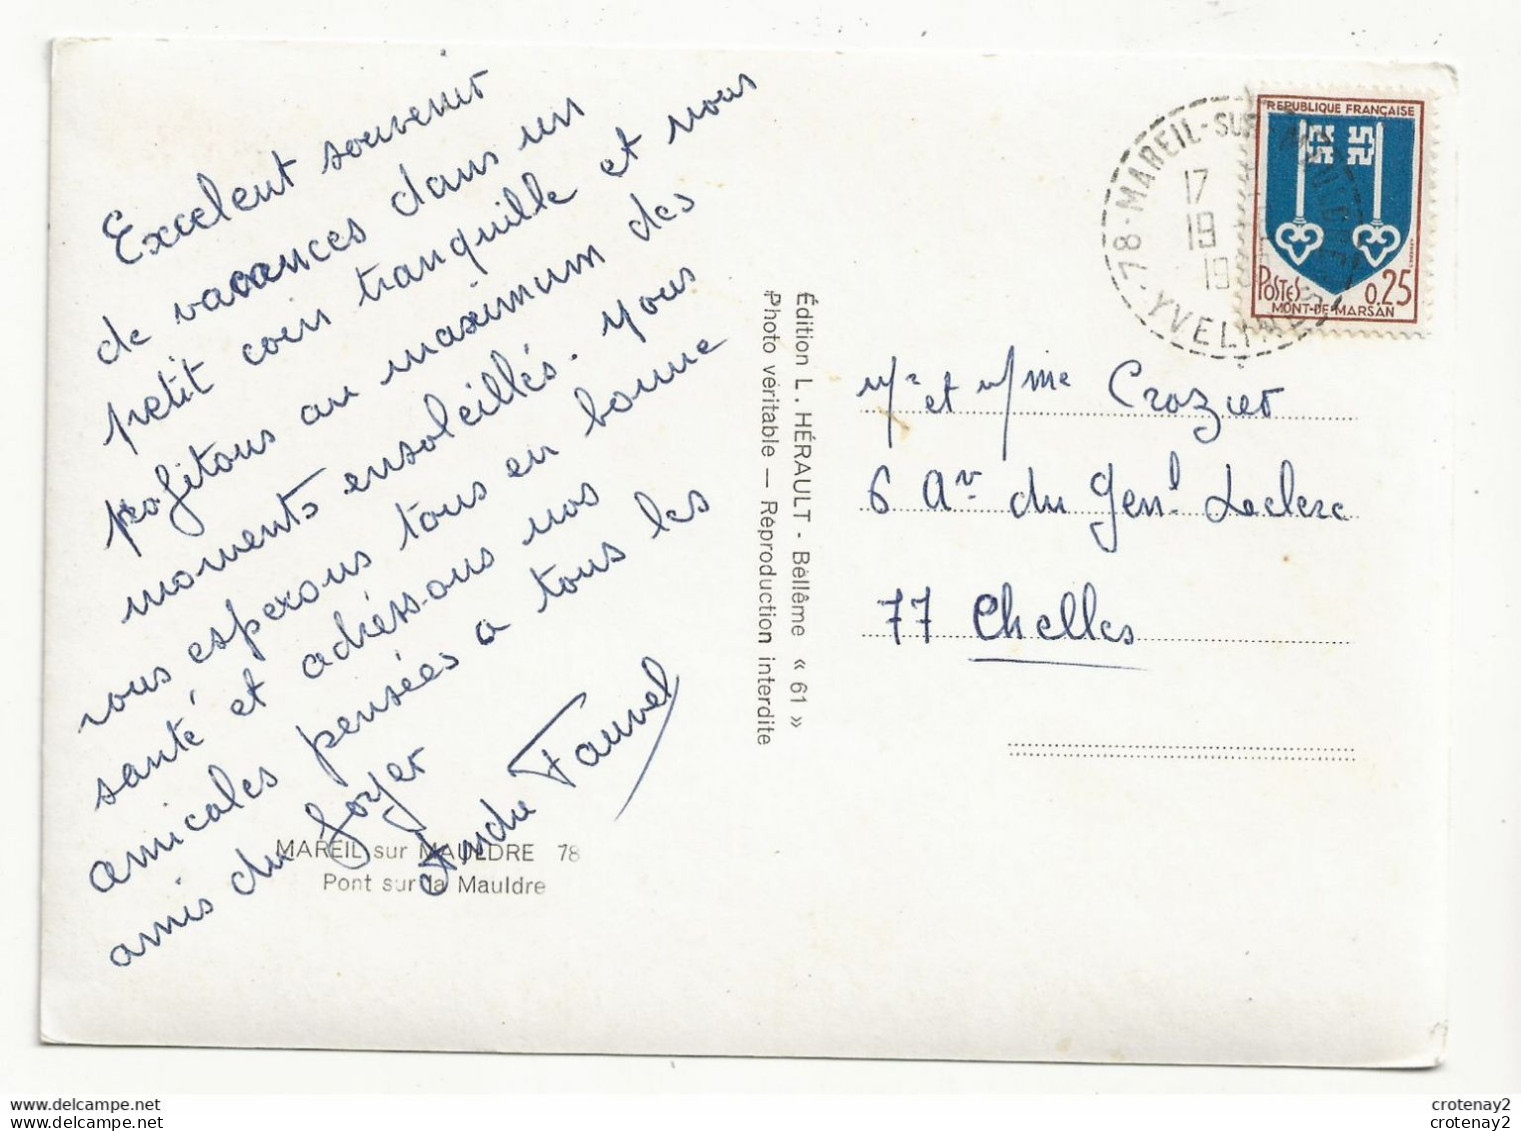 Excelent souvenir
de vacances dans un
petit coin tranquille et nous
profitons au maximum des
moments ensoleillés. Nous
vous esperons tous en bonne
santé et adressons nos
amicales pensées a tous les
amis du foyer
Andre Fauvel
MAREIL sur MAULDRE 78
Pont sur la Mauldre
Édition L. HÉRAULT - Bèllême « 61 »
Photo véritable — Réproduction interdite
78 - MAREIL-SUR-MAULDRE
17
19
19
YVELINES
RÉPUBLIQUE FRANÇAISE
POSTES 0.25
MONT-DE-MARSAN
Mr et Mme Crozier
6 Av. du Genl. Leclerc
77 Chelles
delcampe.net
crotenay2
delcampe.net
crotenay2